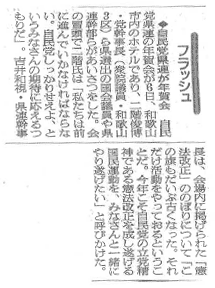 フラッシュ
◆自民党県連が年賀会　自民
党県連の年賀会が6日、和歌山
市内のホテルであり、二階俊博
党幹事長（衆院議員・和歌山
3区）ら県選出の国会議員や県
連幹部らがあいさつをした。会
の冒頭で二階氏は「私たちは前
に進んでいかなければならな
い。自民党しっかりせえよ、と
いうみなさんの期待に応えるつ
もりだ」。吉井和視・県連幹事
長は、会場内に掲げられた「憲
法改正」ののぼりについて「こ
の旗もだいぶ古くなった。それ
だけ活動をやっておるというこ
とだ。今年こそ自民党の立党精
神である憲法改正を成し遂げる
国民運動を、みなさんと一緒に
やり遂げたい」と呼びかけた。